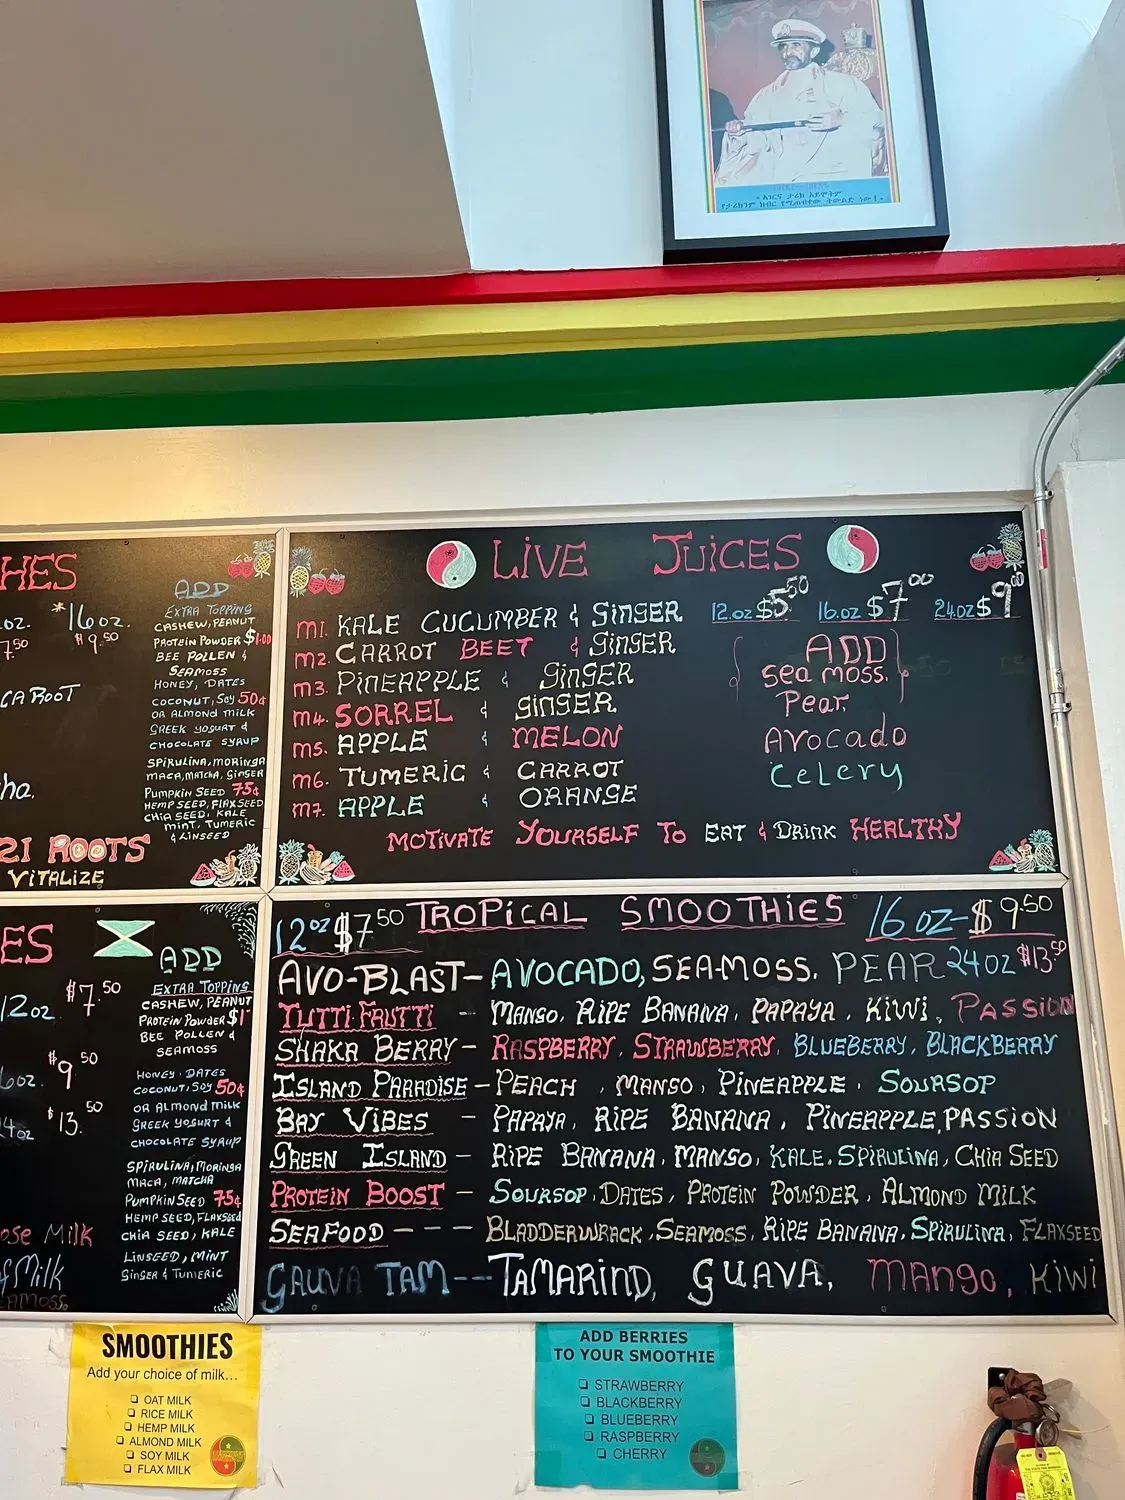 « አገርና ታሪክ አይሞትም
የታሪክንም ክብር የሚጠብቀው ትውልድ ነው ! »
HES
oz. *16oz.
7.50 $9.50
CA ROOT
ha.
ROOTS
VITALIZE
ADD
EXTRA TOPPING
CASHEW, PEANUT
PROTEIN POWDER $1.00
BEE POLLEN &
SEAMOSS
HONEY, DATES
COCONUT, SOY 50¢
OR ALMOND MILK
GREEK YOGURT &
CHOCOLATE SYRUP
SPIRULINA, MORINGA
MACA, MATCHA, GINGER
PUMPKIN SEED 75¢
HEMP SEED, FLAXSEED
CHIA SEED, KALE
MINT, TUMERIC
& LINSEED
LIVE JUICES
12.oz $5.50 16.oz $7.00 24oz $9.00
M1. KALE CUCUMBER & GINGER
M2. CARROT BEET & GINGER
M3. PINEAPPLE & GINGER
M4. SORREL & GINGER
M5. APPLE & MELON
M6. TUMERIC & CARROT
M7. APPLE & ORANGE
ADD
sea moss.
Pear.
Avocado
Celery
MOTIVATE YOURSELF TO EAT & DRINK HEALTHY
ES
12oz $7.50
$9.50
$13.50
ose Milk
Milk
ADD
EXTRA TOPPING
CASHEW, PEANUT
PROTEIN POWDER $1
BEE POLLEN &
SEAMOSS
HONEY. DATES
COCONUT, SOY 50¢
OR ALMOND MILK
GREEK YOGURT &
CHOCOLATE SYRUP
SPIRULINA, MORINGA
MACA, MATCHA
PUMPKIN SEED 75¢
HEMP SEED, FLAXSEED
CHIA SEED, KALE
LINSEED, MINT
GINGER & TUMERIC
12oz $7.50 TROPICAL SMOOTHIES 16 oz-$9.50
AVO-BLAST- AVOCADO, SEA-MOSS. PEAR 24oz $13.50
TUTTI FRUTTI - MANGO, RIPE BANANA, PAPAYA, KIWI, PASSION
SHAKA BERRY- RASPBERRY, STRAWBERRY, BLUEBERRY, BLACKBERRY
ISLAND PARADISE- PEACH, MANGO, PINEAPPLE, SOURSOP
BAY VIBES - PAPAYA, RIPE BANANA, PINEAPPLE, PASSION
GREEN ISLAND - RIPE BANANA, MANGO, KALE, SPIRULINA, CHIA SEED
PROTEIN BOOST - SOURSOP, DATES, PROTEIN POWDER, ALMOND MILK
SEAFOOD - - - BLADDERWRACK, SEAMOSS, RIPE BANANA, SPIRULINA, FLAXSEED
GAUVA TAM--- TAMARIND, GUAVA, MANGO, KIWI
SMOOTHIES
Add your choice of milk...
❑ OAT MILK
❑ RICE MILK
❑ HEMP MILK
❑ ALMOND MILK
❑ SOY MILK
❑ FLAX MILK
ADD BERRIES
TO YOUR SMOOTHIE
❑ STRAWBERRY
❑ BLACKBERRY
❑ BLUEBERRY
❑ RASPBERRY
❑ CHERRY